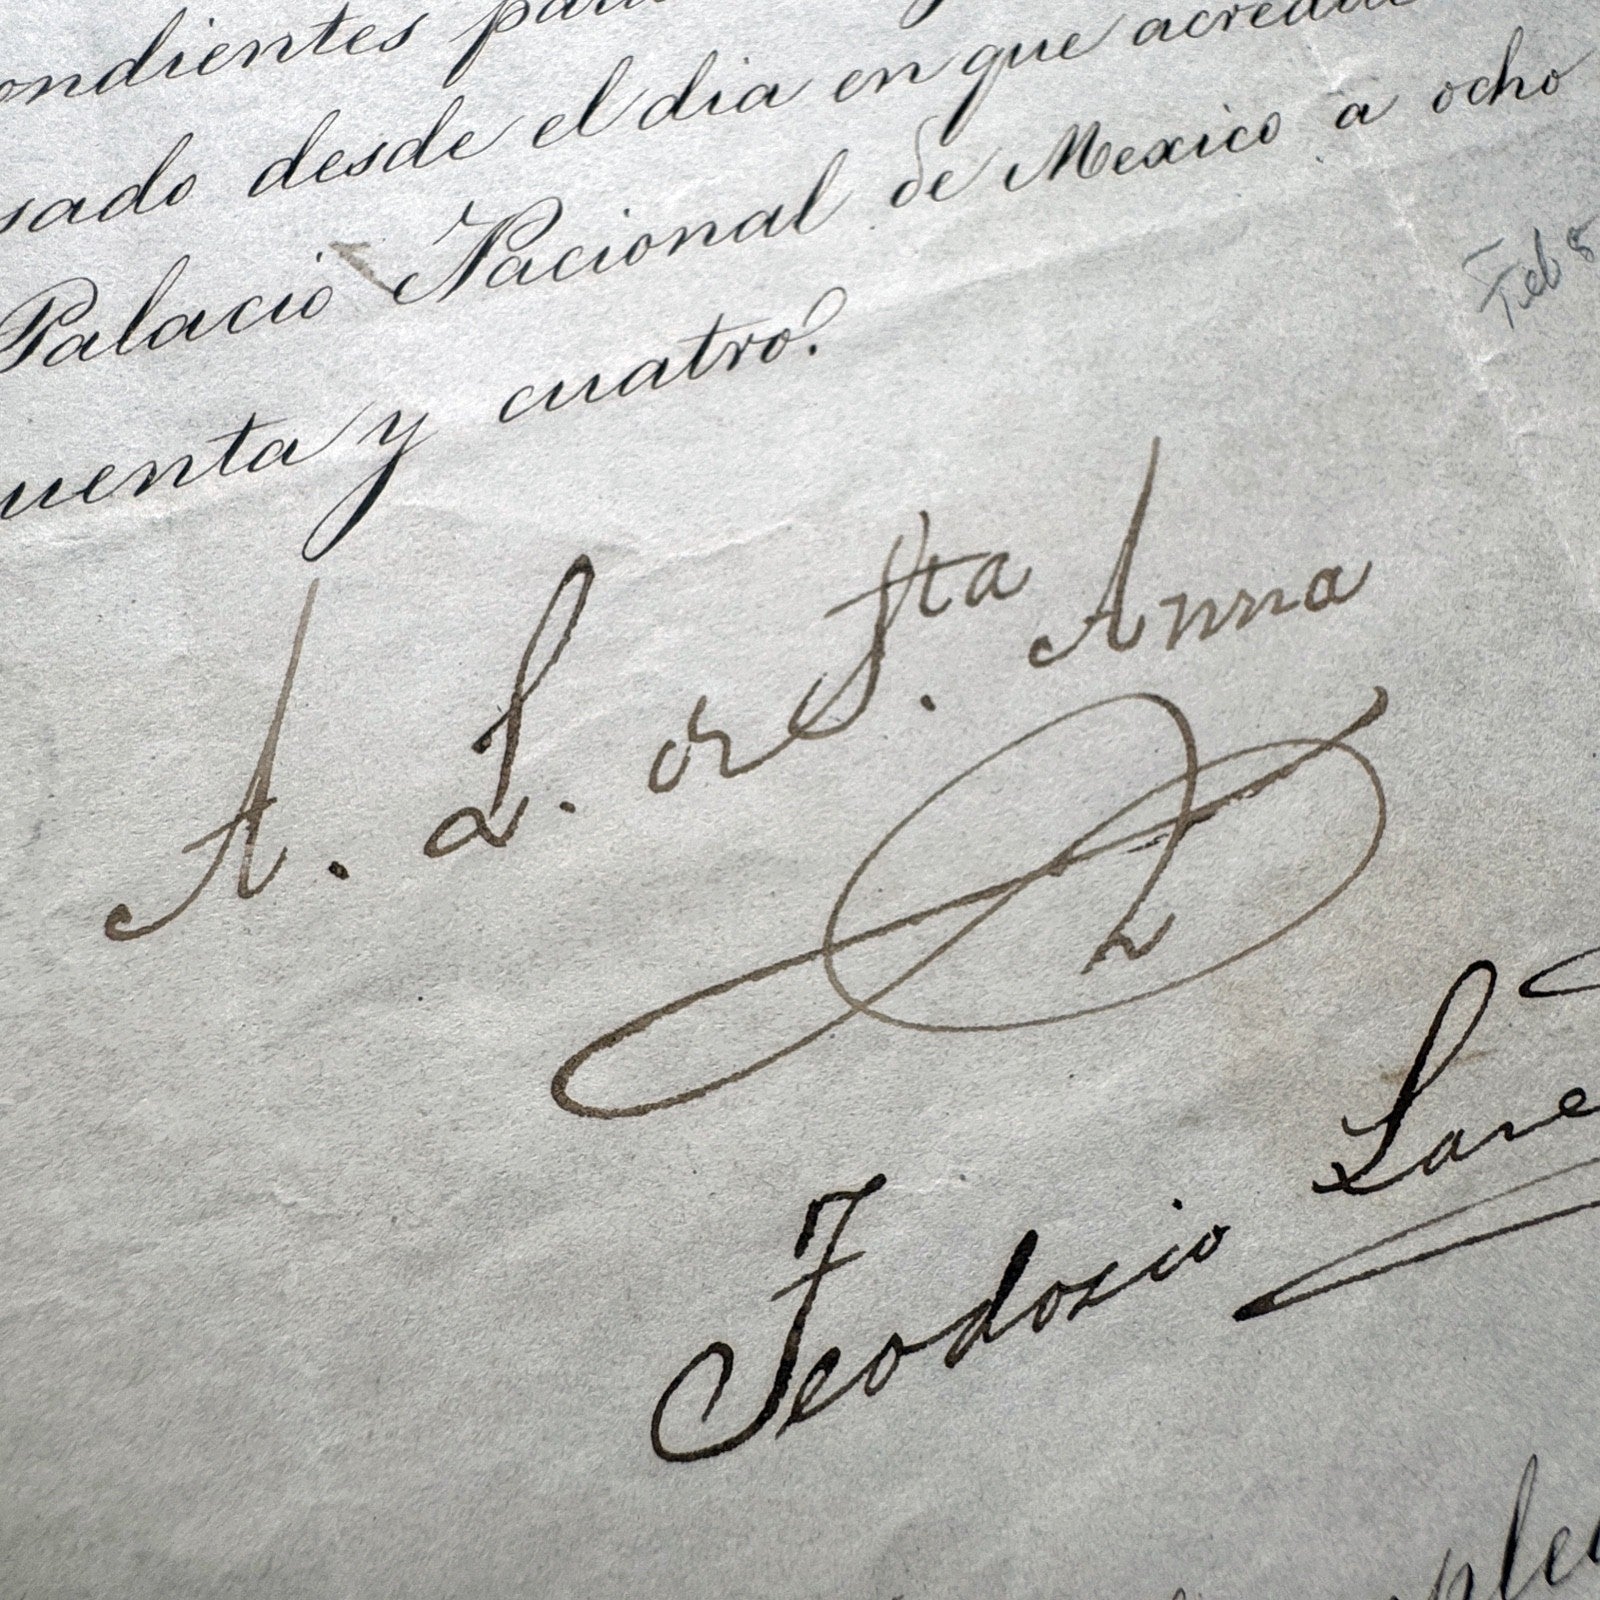 ondientes para
sado desde el dia en que acredite
Palacio Nacional de Mexico a ocho
uenta y cuatro.
Feb 8
A. L. de Sta. Anna
Teodosio Lare